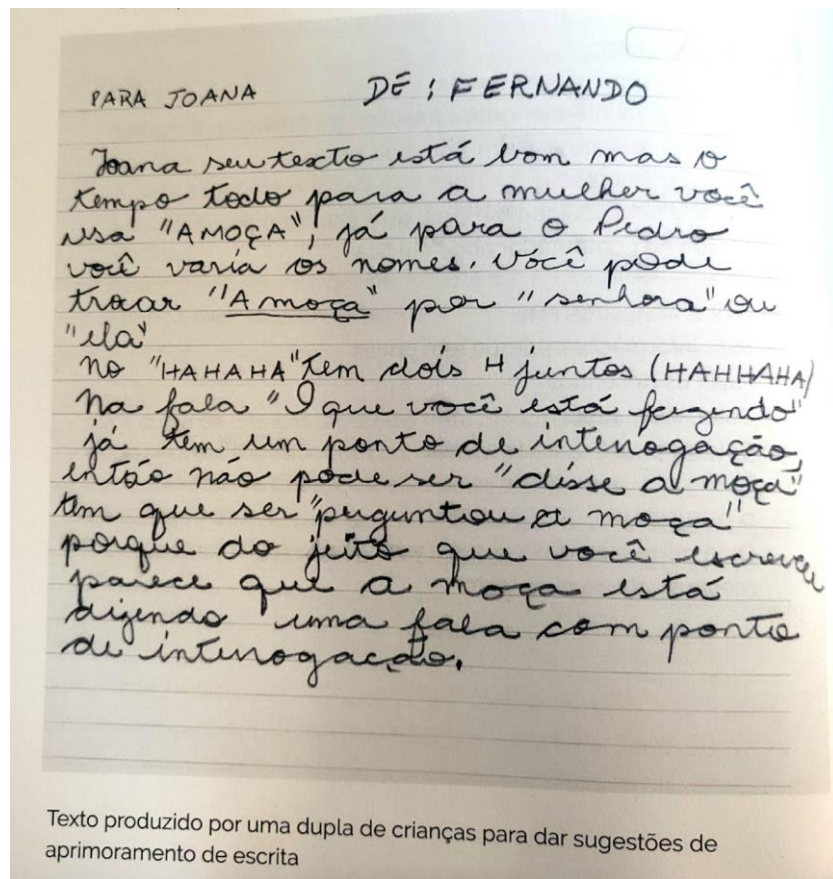 PARA JOANA DE: FERNANDO
Joana seu texto está bom mas o
tempo todo para a mulher você
usa "A MOÇA", já para o Pedro
você varia os nomes. Você pode
trocar "A moça" por "senhora" ou
"ela"
No "HAHAHA" tem dois H juntos (HAHHAHA)
Na fala "I que você está fazendo"
já tem um ponto de interrogação,
então não pode ser "disse a moça"
tem que ser "perguntou a moça"
porque do jeito que você escreveu
parece que a moça está
dizendo uma fala com ponto
de interrogação.
Texto produzido por uma dupla de crianças para dar sugestões de
aprimoramento de escrita